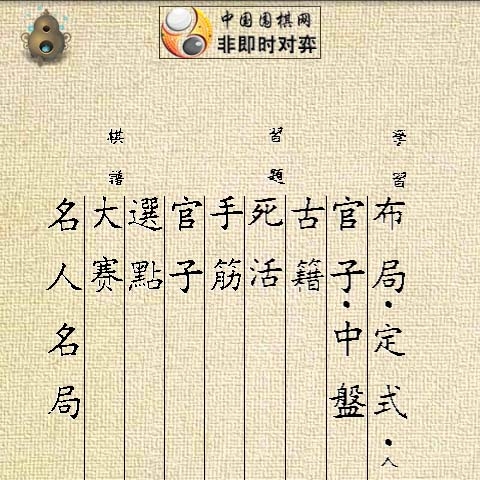 中国围棋网
非即时对弈
學習
習題
棋譜
布局·定式·人
官子·中盤
古籍
死活
手筋
官子
選點
大赛
名人名局